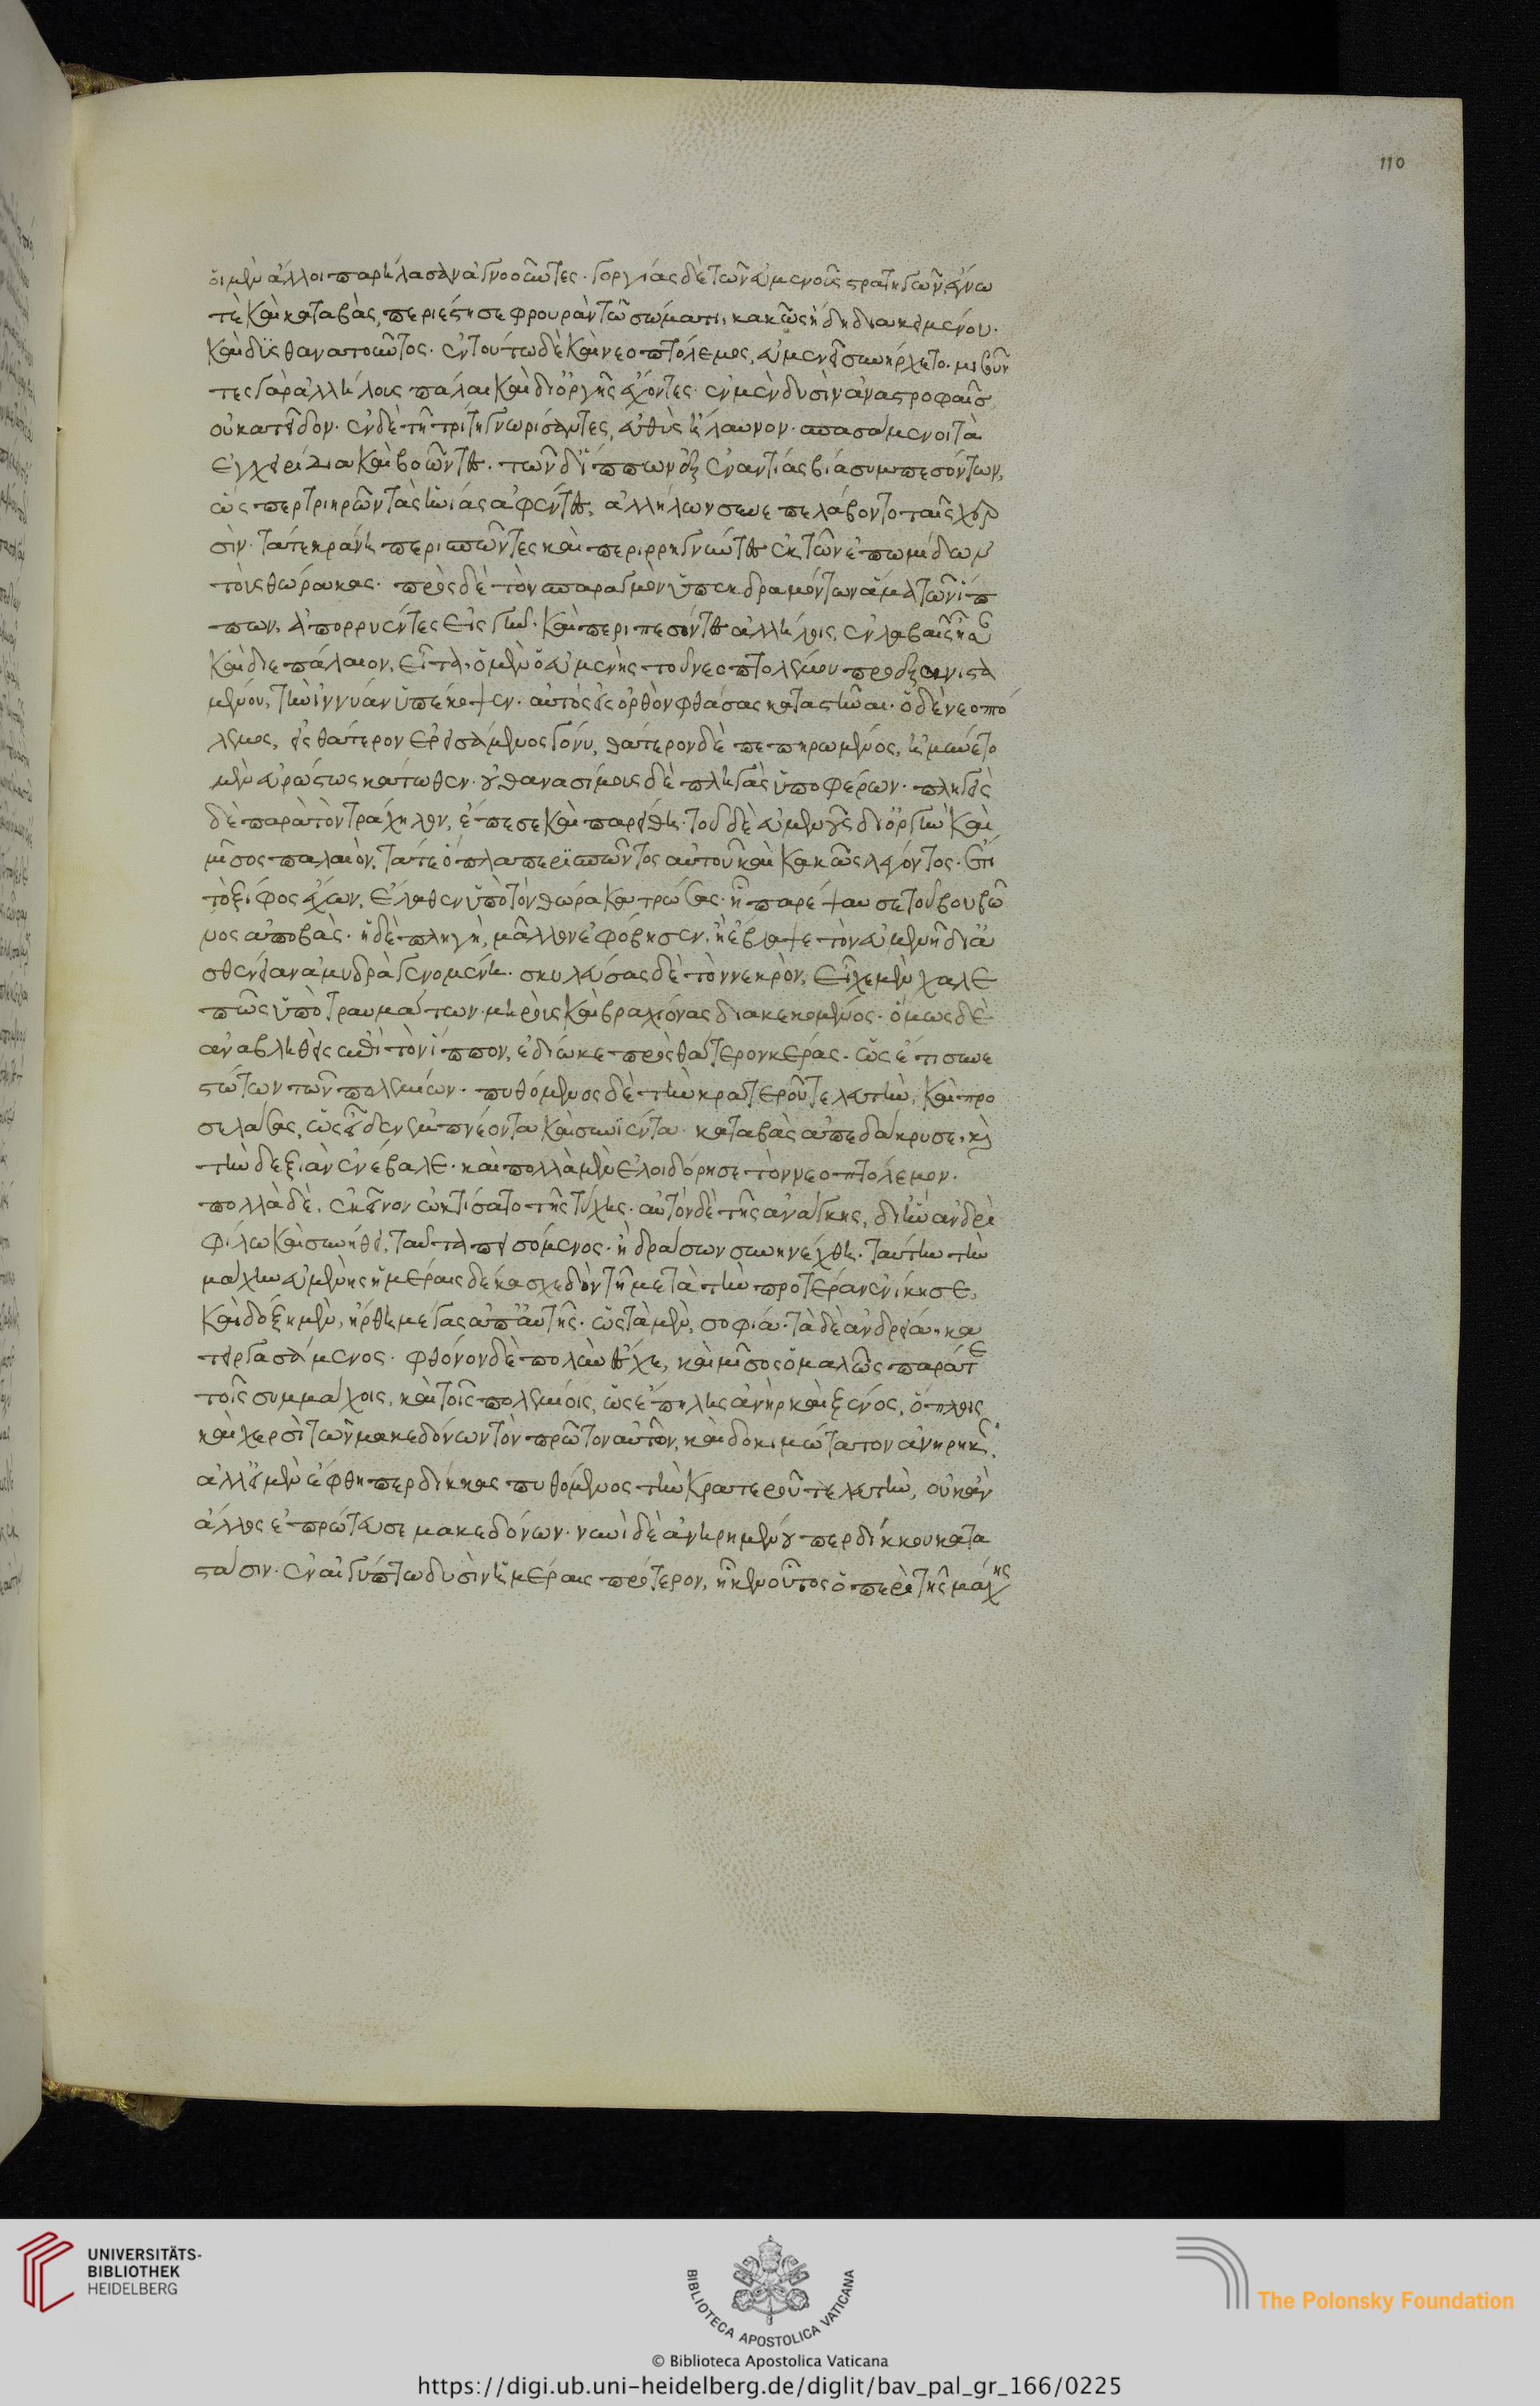 110
οἱ μὲν ἄλλοι παρήλασαν ἀγνοοῦντες. γοργίας δὲ τῶν εὐμενοῦς στρατηγῶν, ἔγνω
τὲ καὶ καταβὰς, περιέστησε φρουρὰν τῶ σώματι, κακῶς ἤδη διακειμένου.
καὶ δυσθανατοῦντος. ἐν τούτω δὲ καὶ νεοπτόλεμος, εὐμενεῖ συνήρχετο. μισοῦν
τες γὰρ ἀλλήλους πάλαι καὶ δι ὀργῆς ἔχοντες. ἐν μὲν δυσὶν ἀναστροφαῖς
οὐ κατεῖδον. ἐν δὲ τῆ τρίτη γνωρίσαντες, εὐθὺς ἤλαυνον. σπασάμενοι τὰ
ἐγχειρίδια καὶ βοῶντες. τῶν δ ἵππων ἐξ ἐναντίας βία συμπεσόντων,
ὥσπερ τριηρῶν τὰς ἡνίας ἀφέντες, ἀλλήλων ἐπελάβοντο ταῖς χερ
σὶν. τά τε κράνη περισπῶντες καὶ περιρρηγνύντες ἐκ τῶν ἐπωμίδων
τοὺς θώρακας. πρὸς δὲ τὸν σπαραγμὸν ὑπεκδραμόντων ἅμα τῶν ἵπ
πων, ἀπορρυέντες εἰς γῆν. καὶ περιπεσόντες ἀλλήλοις, ἐν λαβαῖς ἦσαν
καὶ διεπάλαιον, εἶτα, ὁ μὲν εὐμενὴς τοῦ νεοπτολέμου προεξανιστα
μένου, τὴν ἰγνύαν ὑπέκοψεν. αὐτὸς εἰς ὀρθὸν φθάσας καταστῆναι. ὁ δὲ νεοπτό
λεμος, εἰς θάτερον ἐρεισάμενος γόνυ, θάτερον δὲ πεπηρωμένος, ἠμύνετο
μὲν εὐρώστως κάτωθεν. οὐ θανασίμους δὲ πληγὰς ὑποφέρων. πληγεὶς
δὲ παρὰ τὸν τράχηλον, ἔπεσε καὶ παρείθη. τοῦ δὲ εὐμενοῦς δι ὀργὴν καὶ
μῖσος παλαιὸν, τά τε ὅπλα περισπῶντος αὐτοῦ καὶ κακῶς λέγοντος. ἔτι
τὸ ξίφος ἔχων, ἔλαθεν ὑπὸ τὸν θώρακα τρώσας. ἧ παρέψαυσε τοῦ βουβῶ
νος ἀποβὰς. ἡ δὲ πληγὴ, μᾶλλον ἐφόβησεν, ἢ ἔβλαψε τὸν εὐμενῆ δι ἀ
σθένειαν ἀμυδρὰ γενομένη. σκυλεύσας δὲ τὸν νεκρὸν, εἶχε μὲν χαλε
πῶς ὑπὸ τραυμάτων. μηροὺς καὶ βραχίονας διακεκομμένος. ὅμως δὲ
ἀναβληθεὶς ἐπὶ τὸν ἵππον, ἐδίωκε πρὸς θάτερον κέρας. ὡς ἔτι συνε
στώτων τῶν πολεμίων. πυθόμενος δὲ τὴν κρατεροῦ τελευτὴν, καὶ προ
σελάσας, ὡς εἶδεν ἐμπνέοντα καὶ συνϊέντα. καταβὰς ἀπεδάκρυσε, καὶ
τὴν δεξιὰν ἐνέβαλε. καὶ πολλὰ μὲν ἐλοιδόρησε τὸν νεοπτόλεμον.
πολλὰ δὲ, ἐκεῖνον ὠκτίσατο τῆς τύχης. αὐτὸν δὲ τῆς ἀνάγκης, δι ἣν ἀνδρὶ
φίλω καὶ συνήθει, ταῦτα πεισόμενος. ἢ δράσων συνηνέχθη. ταύτην τὴν
μάχην εὐμενὴς ἡμέραις δέκα σχεδὸν τῆ μετὰ τὴν προτέραν ἐνίκησε,
καὶ δόξη μὲν, ἤρθη μέγας ἀπ αὐτῆς. ὡς τὰ μὲν, σοφία. τὰ δὲ ἀνδρεία, κα
τειργασάμενος. φθόνον δὲ πολὺν ἔσχε, καὶ μῖσος ὁμαλῶς παρά τε
τοῖς συμμάχοις, καὶ τοῖς πολεμίοις, ὡς ἔπηλυς ἀνὴρ καὶ ξένος, ὅπλοις
καὶ χερσὶ τῶν μακεδόνων τὸν πρῶτον αὐτῶν, καὶ δοκιμώτατον ἀνηρηκώς.
ἀλλ εἰ μὲν ἔφθη περδίκκας πυθόμενος τὴν κρατεροῦ τελευτὴν, οὐκ ἂν
ἄλλος ἐπρώτευσε μακεδόνων. νυνὶ δὲ ἀνηρημένου περδίκκου κατὰ
στάσιν. ἐν αἰγύπτω δυσὶν ἡμέραις πρότερον, ἧκεν οὗτος ὁ περὶ τῆς μάχης
UNIVERSITÄTS-
BIBLIOTHEK
HEIDELBERG
BIBLIOTECA APOSTOLICA VATICANA
The Polonsky Foundation
© Biblioteca Apostolica Vaticana
https://digi.ub.uni-heidelberg.de/diglit/bav_pal_gr_166/0225